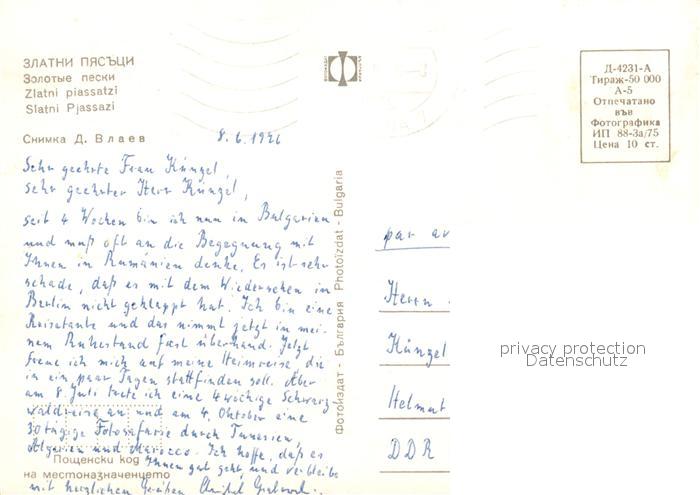 ЗЛАТНИ ПЯСЪЦИ
Золотые пески
Zlatni piassatzi
Slatni Pjassazi
Снимка Д. Влаев
8.6.1976
Sehr geehrte Frau Künzel,
sehr geehrter Herr Künzel,
seit 4 Wochen bin ich nun in Bulgarien
und muß oft an die Begegnung mit
Ihnen in Rumänien denke. Es ist sehr
schade, daß es mit dem Wiedersehen in
Berlin nicht geklappt hat. Ich bin eine
Reisetante und das nimmt jetzt in mei-
nem Ruhestand fast überhand. Jetzt
freue ich mich auf meine Heimreise, die
in ein paar Tagen stattfinden soll. Aber
am 8. Juli trete ich eine 4wöchige Schwarz-
waldreise an und am 4. Oktober eine
30tägige Fotosafarie durch Tunesien,
Algerien und Marocco. Ich hoffe, daß es
Ihnen gut geht und verbleibe
mit herzlichen Grüßen
Пощенски код
на местоназначението
ФОТОИЗДАТ
Фотоиздат - България Photoizdat - Bulgaria
Д-4231-А
Тираж-50 000
А-5
Отпечатано
във
Фотографика
ИП 88-3а/75
Цена 10 ст.
par av
Herrn
Künzel
Helmut
DDR
privacy protection
Datenschutz